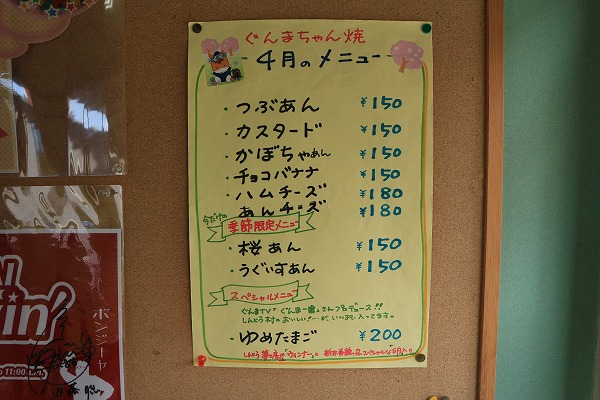 ぐんまちゃん焼
4月のメニュー
・つぶあん ¥150
・カスタード ¥150
・かぼちゃあん ¥150
・チョコバナナ ¥150
・ハムチーズ ¥180
あんチーズ ¥180
今だけの
季節限定メニュー
・桜あん ¥150
・うぐいすあん ¥150
スペシャルメニュー
ぐんまTV「ぐんま一番」さんプロデュース!!
しんとう村のおいしい!…が、いっぱい入ってます。
・ゆめたまご ¥200
ボンジーヤ